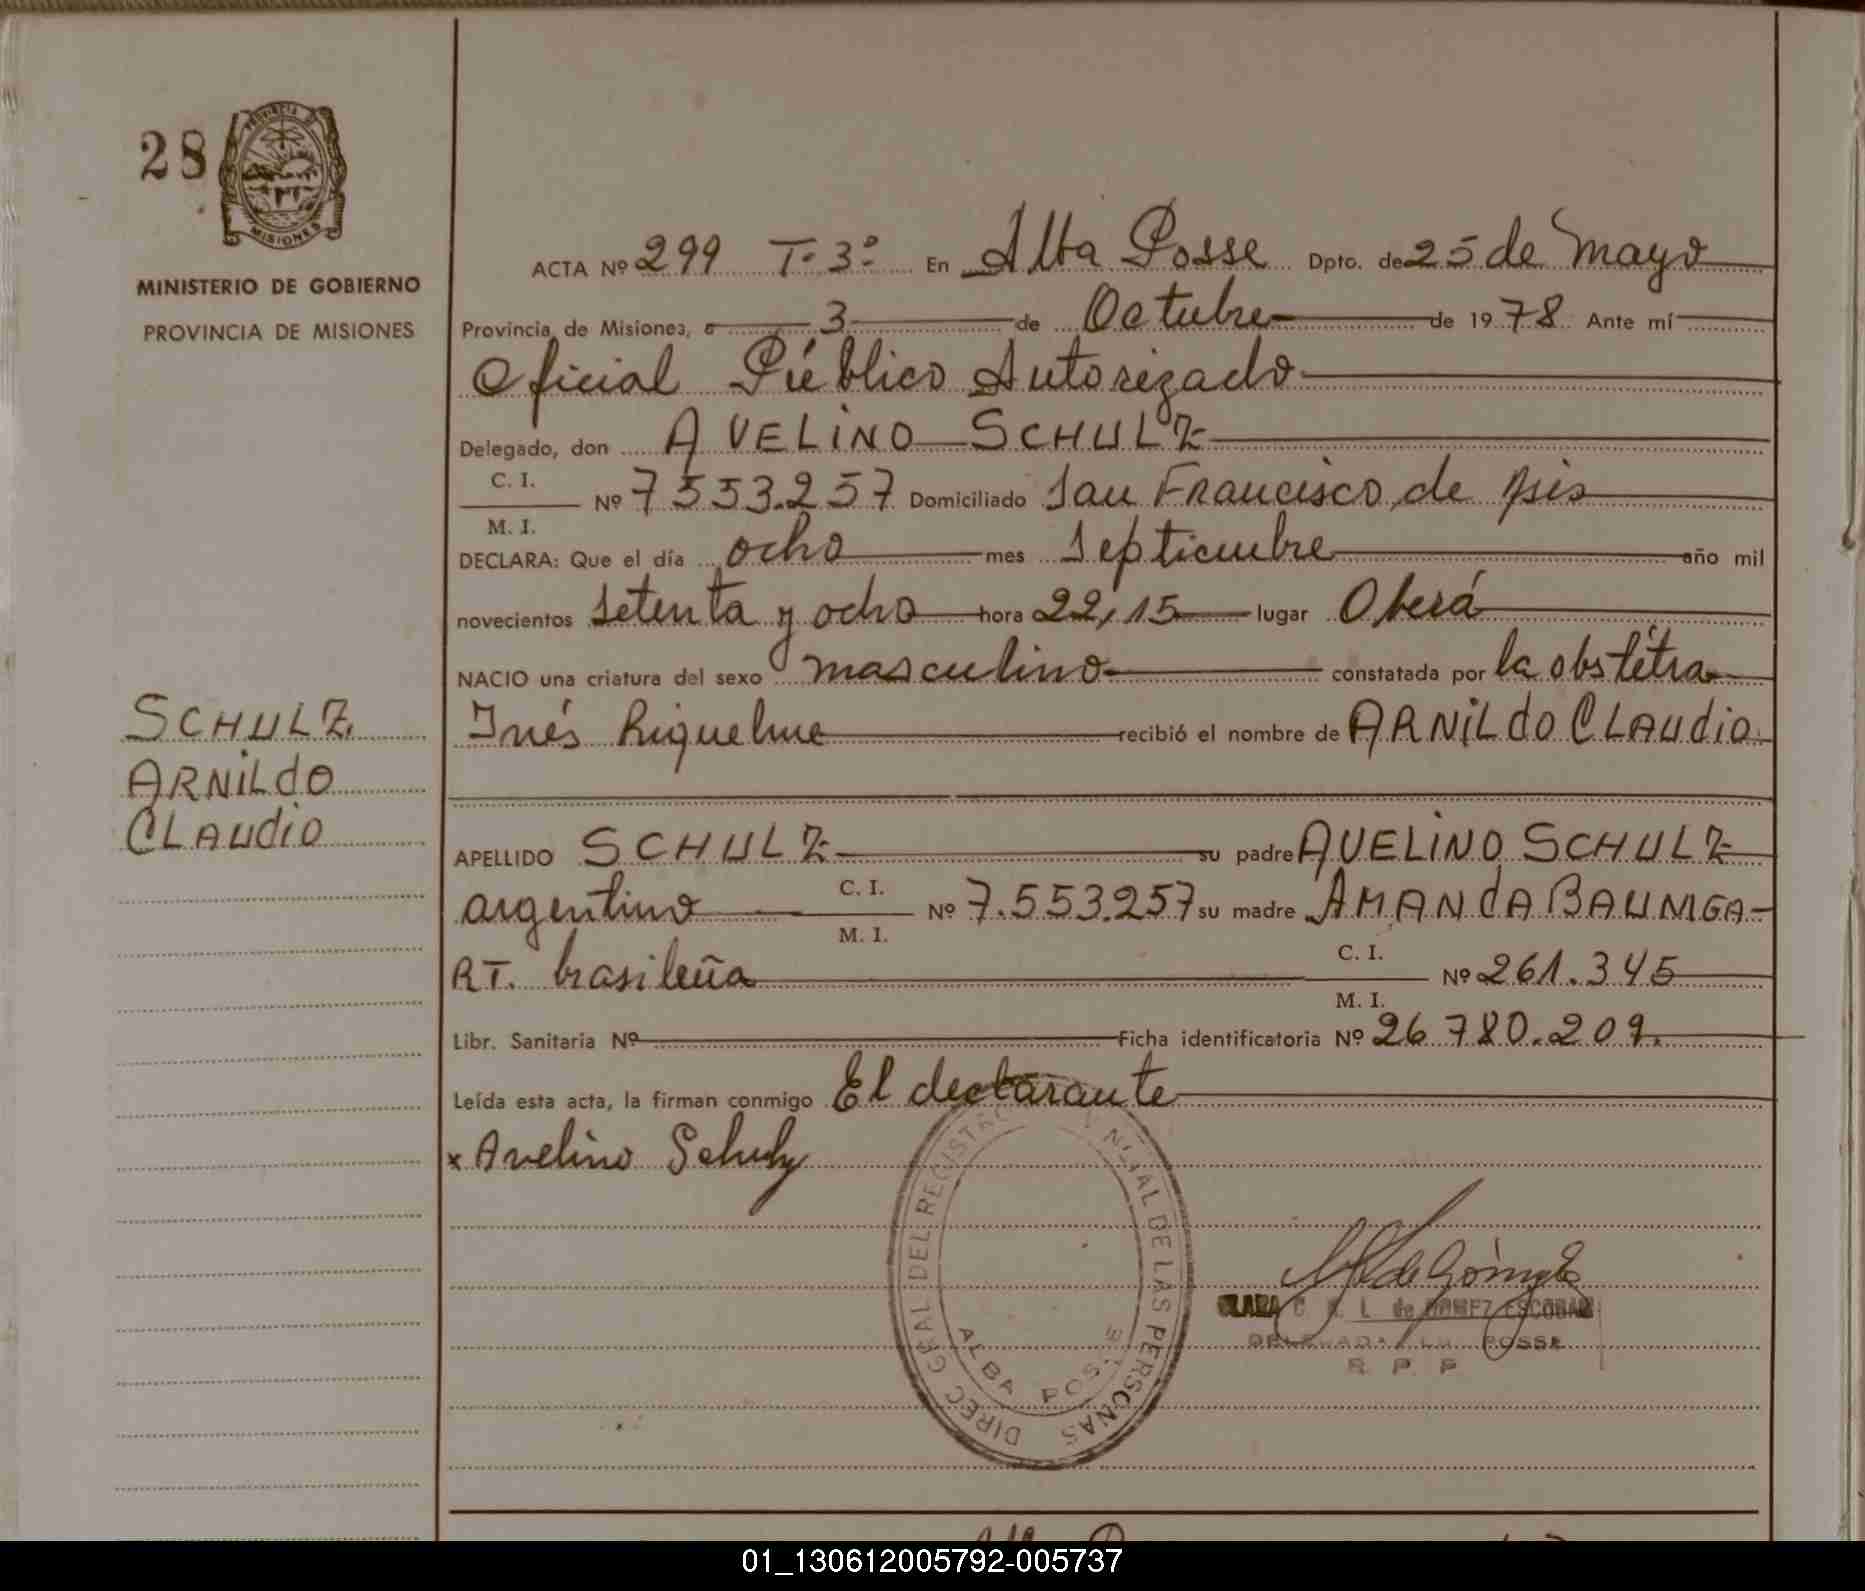 28
PROVINCIA DE
MISIONES
MINISTERIO DE GOBIERNO
PROVINCIA DE MISIONES
SCHULZ
ARNILDO
CLAUDIO
ACTA Nº 299 T. 3º En Alba Posse Dpto. de 25 de Mayo
Provincia de Misiones, a 3 de Octubre de 1978 Ante mí
Oficial Público Autorizado
Delegado, don AVELINO SCHULZ
C. I.
Nº 7553.257 Domiciliado San Francisco de Asis
M. I.
DECLARA: Que el día ocho mes Septiembre año mil
novecientos setenta y ocho hora 22,15 lugar Oberá
NACIO una criatura del sexo masculino constatada por la obstétra
Inés Riquelme recibió el nombre de ARNILDO CLAUDIO
APELLIDO SCHULZ su padre AVELINO SCHULZ
argentino C. I. Nº 7.553.257 su madre AMANDA BAUMGA-
M. I.
RT. brasileña C. I. Nº 261.345
M. I.
Libr. Sanitaria Nº Ficha identificatoria Nº 26.780.209.
Leída esta acta, la firman conmigo El declarante
x Avelino Schulz
DIREC GRAL DEL REGIST NCIAL DE LAS PERSONAS
ALBA POSSE
CLARA C. L. de GOMEZ ESCOBAR
DELEGADA POSSE
R. P. P
01_130612005792-005737